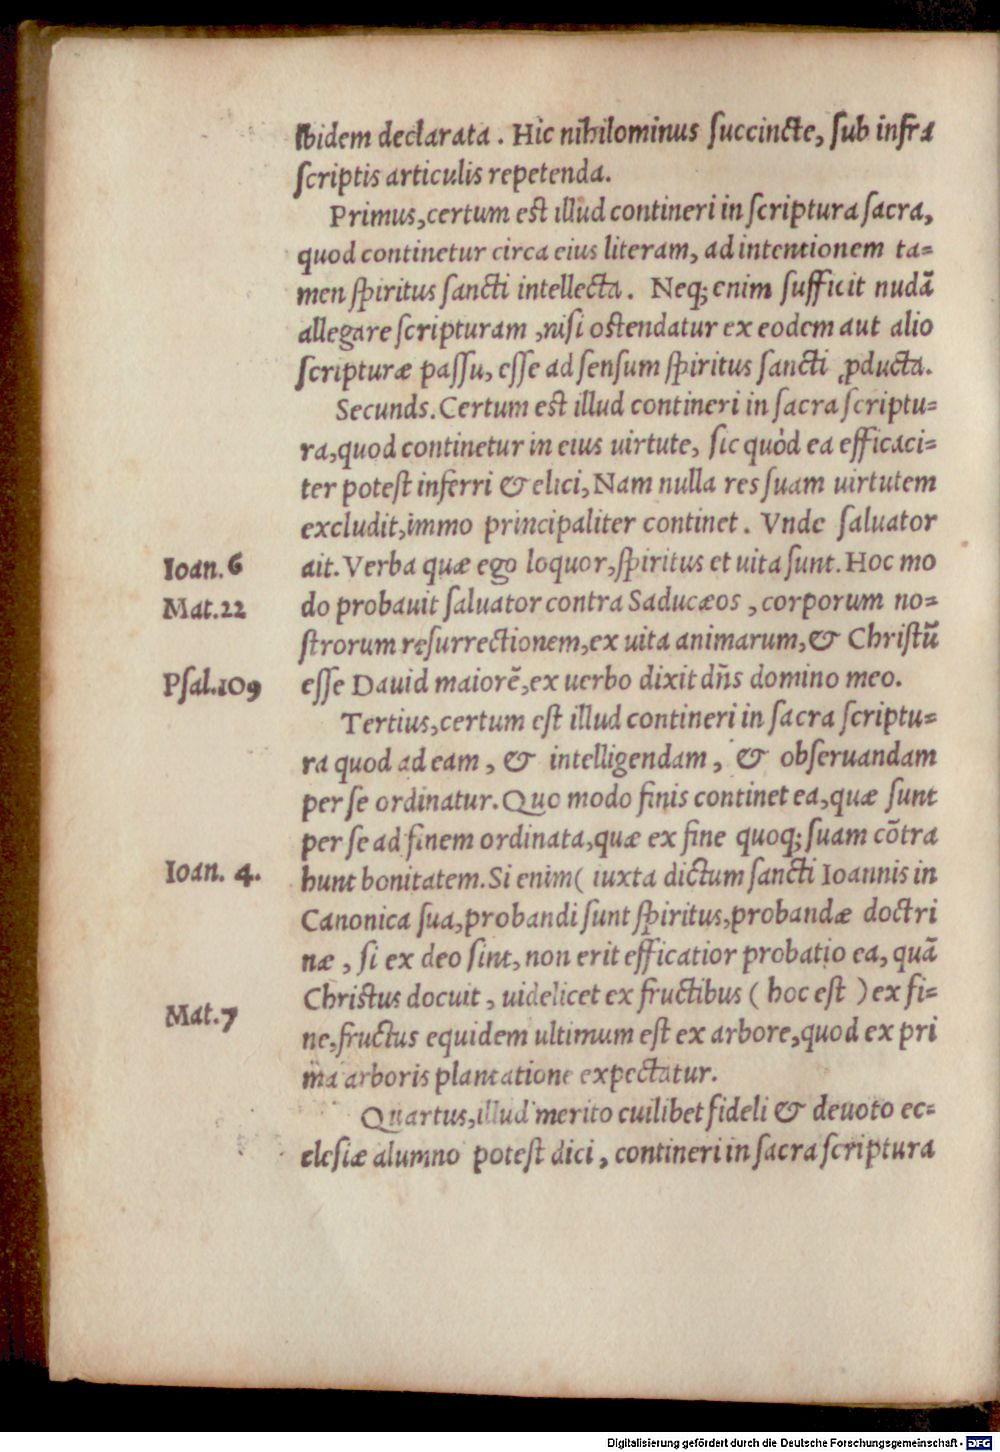 ibidem declarata . Hic nihilominus ſuccincte, ſub infra
ſcriptis articulis repetenda.
Primus,certum eſt illud contineri in ſcriptura ſacra,
quod continetur circa eius literam, ad intentionem ta=
men ſpiritus ſancti intellecta . Neq; enim ſufficit nudā
allegare ſcripturam ,niſi oſtendatur ex eodem aut alio
ſcripturæ paſſu, eſſe ad ſenſum ſpiritus ſancti ꝓducta.
Secunds.Certum eſt illud contineri in ſacra ſcriptu=
ra,quod continetur in eius uirtute, ſic quòd ea efficaci=
ter poteſt inferri & elici, Nam nulla res ſuam uirtutem
excludit,immo principaliter continet . Vnde ſaluator
Ioan.6
ait. Verba quæ ego loquor,ſpiritus et uita ſunt. Hoc mo
Mat.22
do probauit ſaluator contra Saducæos , corporum no=
ſtrorum reſurrectionem,ex uita animarum,& Chriſtū
Pſal.109
eſſe Dauid maiorē,ex uerbo dixit dñs domino meo.
Tertius,certum eſt illud contineri in ſacra ſcriptu=
ra quod ad eam , & intelligendam , & obſeruandam
per ſe ordinatur. Quo modo finis continet ea,quæ ſunt
per ſe ad finem ordinata,quæ ex fine quoq; ſuam cōtra
Ioan. 4.
hunt bonitatem. Si enim ( iuxta dictum ſancti Ioannis in
Canonica ſua,probandi ſunt ſpiritus,probandæ doctri
næ , ſi ex deo ſint, non erit efficatior probatio ea, quā
Chriſtus docuit , uidelicet ex fructibus ( hoc eſt ) ex fi=
Mat.7
ne,fructus equidem ultimum eſt ex arbore,quod ex pri
ma arboris plantatione expectatur.
Quartus,illud merito cuilibet fideli & deuoto ec=
cleſiæ alumno poteſt dici , contineri in ſacra ſcriptura
Digitalisierung gefördert durch die Deutsche Forschungsgemeinschaft - DFG